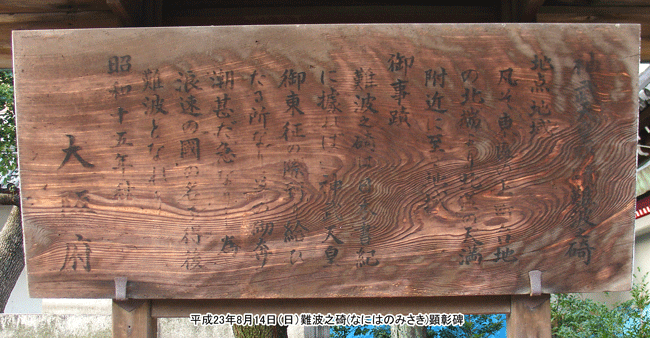 神武天皇 難波之碕
地点地域
凡そ東 台地
の北端より 天満
附近に至
御事蹟
難波之碕は日本書紀
に據れば 神武天皇
御東征の際到り給ひ
たる所なり
潮甚だ急な 為
浪速の國の名を得後
難波となれり
昭和十五年
大阪府
平成23年8月14日(日)難波之碕(なにはのみさき)顕彰碑